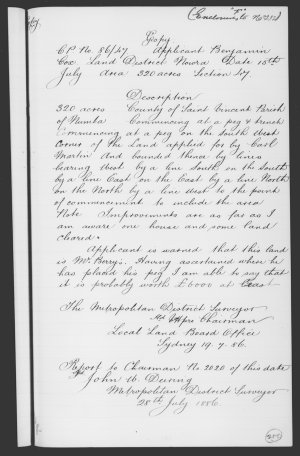 Copy
C.P. No. 86/47 Applicant Benjamin
Cox Land District Nowra Date 15th
July Area 320 acres Section 47
Description
320 acres County of Saint Vincent Parish
of Numba Commencing at a peg & trench
Commencing at a peg on the South West
Corner of the Land applied for by Earl
Martin and bounded thence by lines
bearing West by a line South on the South
by a line East on the East by a line North
on the North by a line West to the point
of commencement to include the area
Note Improvements are as far as I
am aware one house and some land
cleared.
Applicant is warned that this land
is Mr Berry's. Having ascertained where he
has placed his peg I am able to say that
it is probably worth £6000 at least
The Metropolitan District Surveyor
Chairman
Local Land Board Office
Sydney 19.7.86.
Report to Chairman No 2020 of this date
John W. Deering
Metropolitan District Surveyor
28th July 1886.